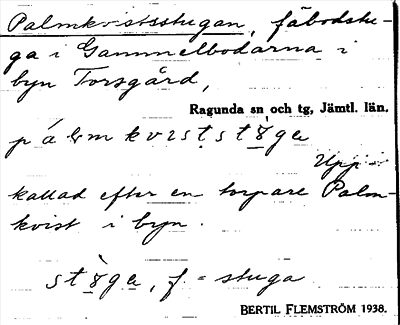 Palmkvistsstugan, fäbodstu-
ga i Gammelbodarna i
byn Torsgård,
Ragunda sn och tg, Jämtl. län.
Upp-
kallad efter en torpare Palm-
kvist i byn.
f = stuga
BERTIL FLEMSTRÖM 1938.